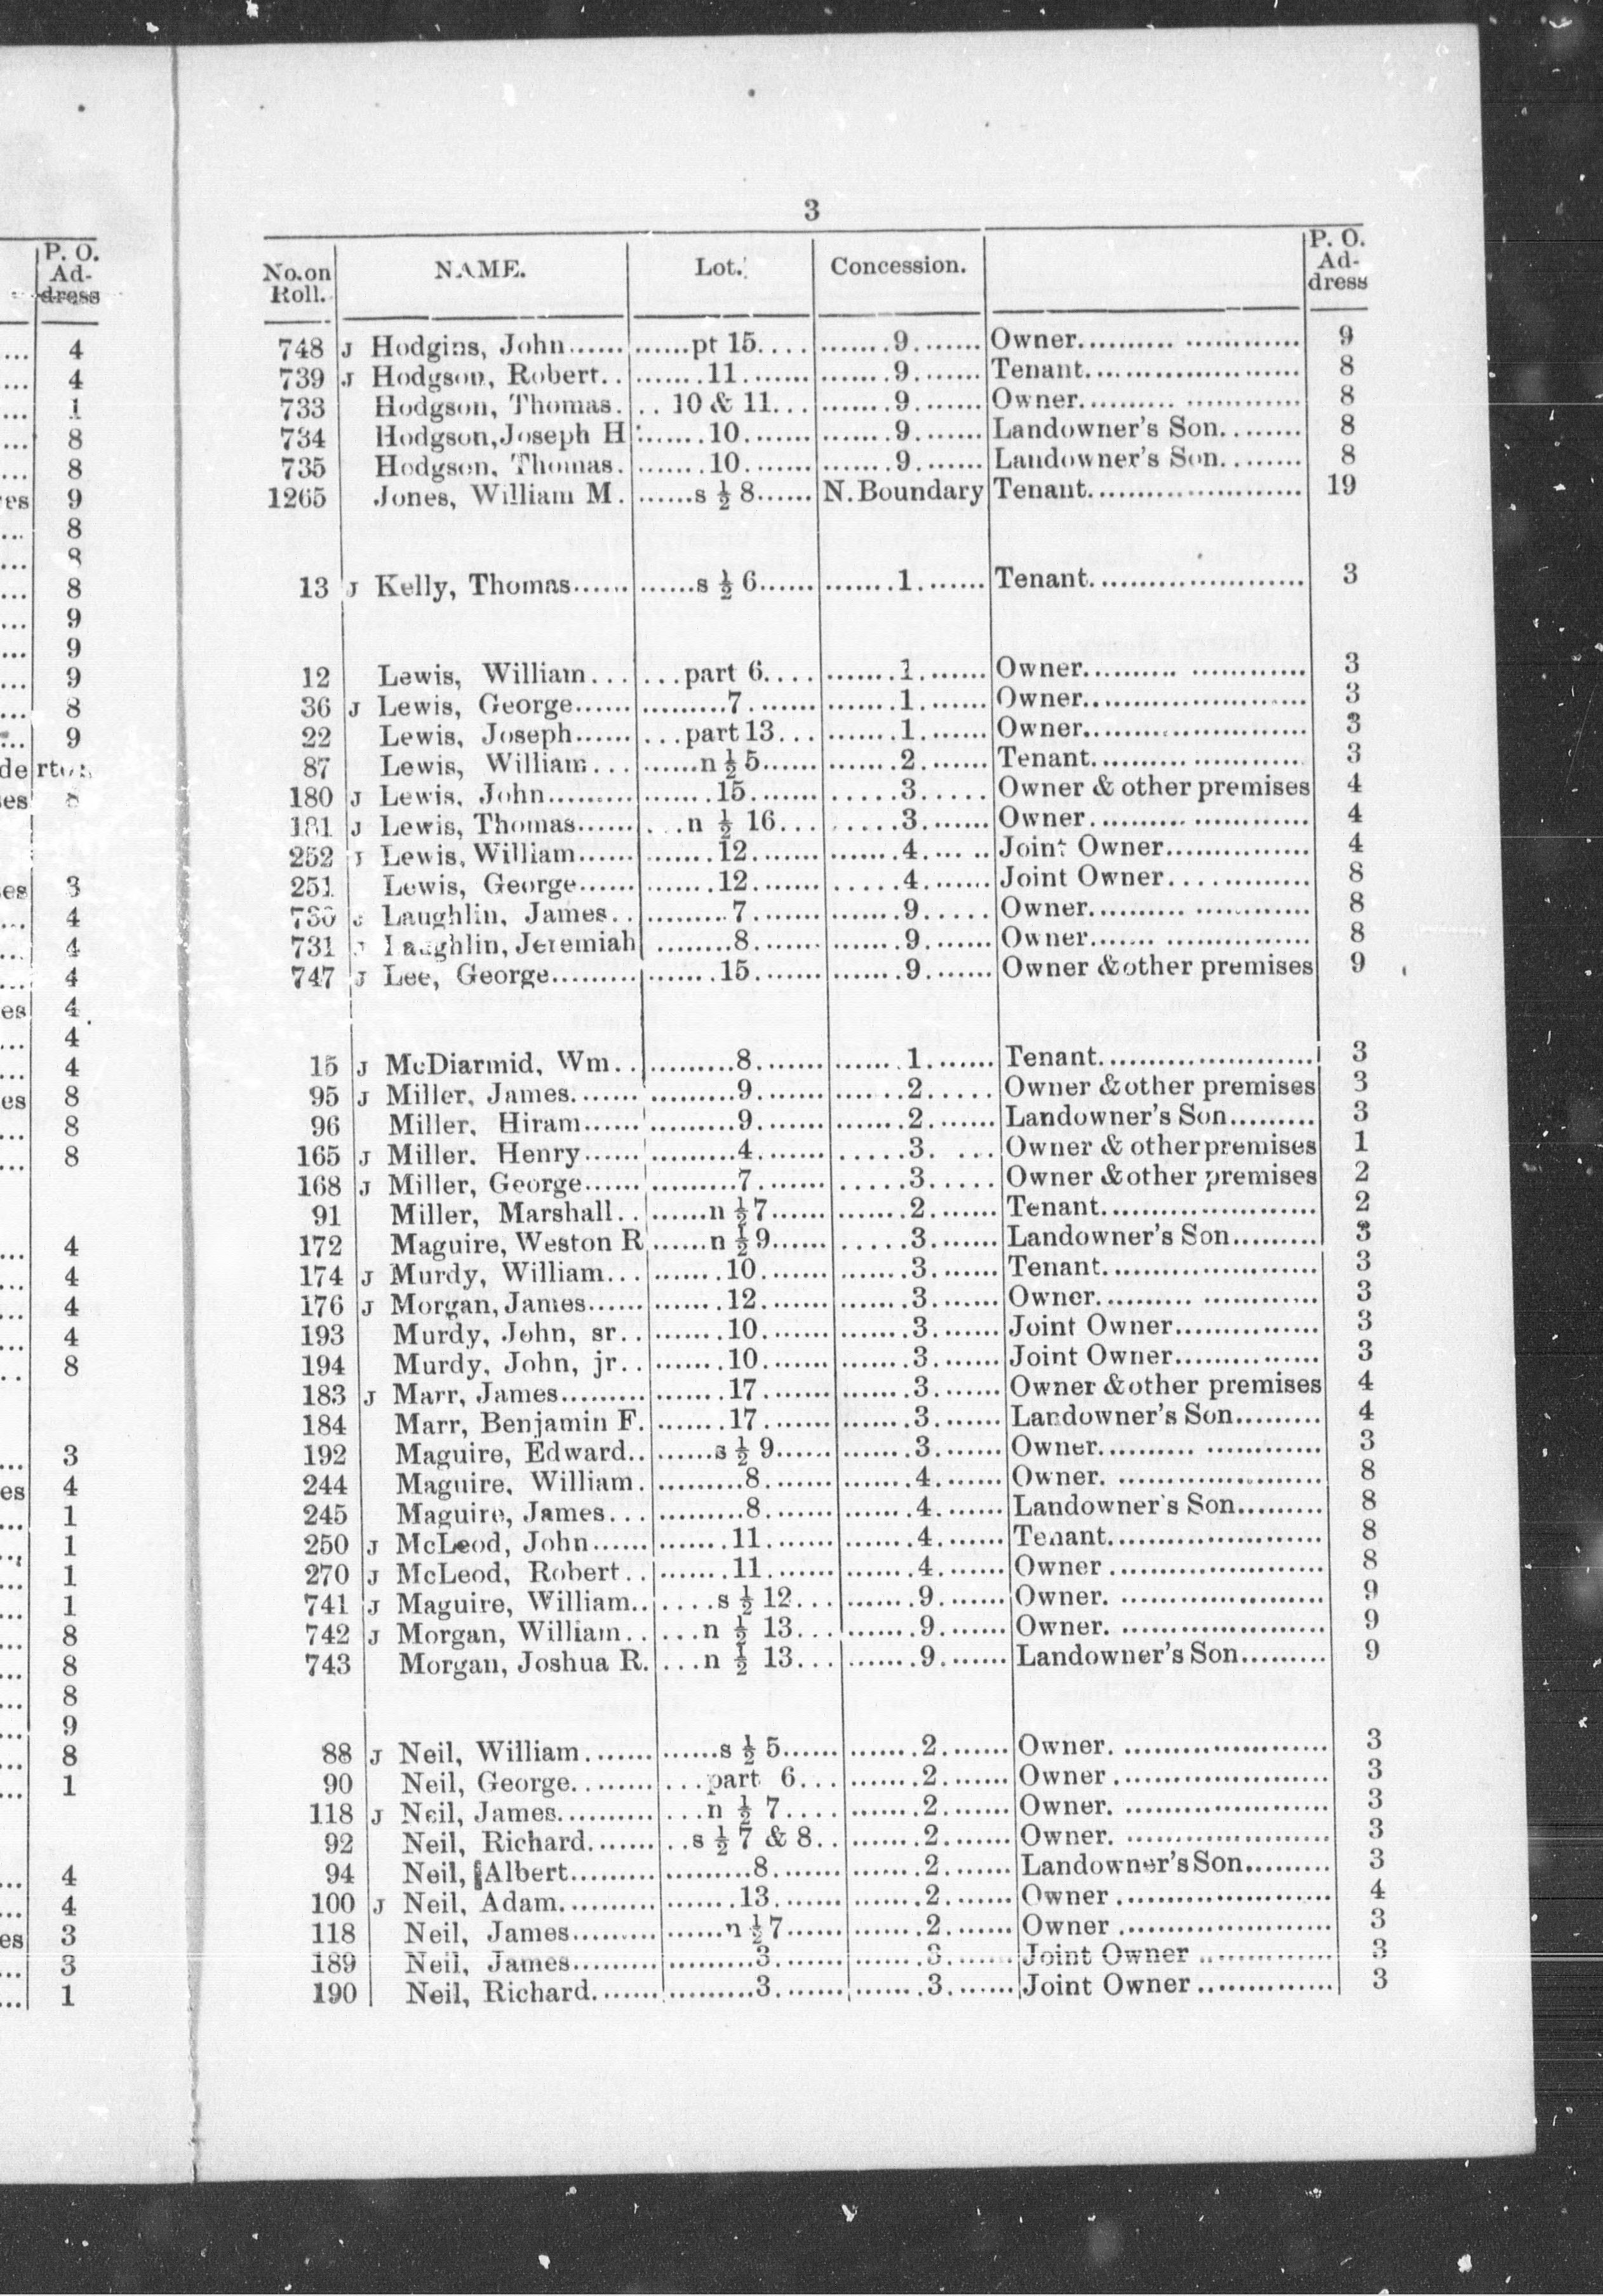 3
No. on Roll. NAME. Lot. Concession. P. O. Address
748 J Hodgins, John...... ......pt 15.... .......9....... Owner.......... ............ 9
739 J Hodgson, Robert.. .......11....... .......9....... Tenant...................... 8
733 Hodgson, Thomas. .. 10 & 11... .......9....... Owner.......... ............ 8
734 Hodgson, Joseph H .......10....... .......9....... Landowner's Son......... 8
735 Hodgson, Thomas. .......10....... .......9....... Landowner's Son......... 8
1265 Jones, William M. ......s ½ 8...... N. Boundary Tenant...................... 19
13 J Kelly, Thomas...... ......s ½ 6...... .......1....... Tenant...................... 3
12 Lewis, William... ...part 6.... .......1....... Owner.......... ............ 3
36 J Lewis, George...... .........7....... .......1....... Owner....................... 3
22 Lewis, Joseph...... ...part 13... .......1....... Owner....................... 3
87 Lewis, William... ......n ½ 5...... .......2....... Tenant.......... ............ 3
180 J Lewis, John......... .......15....... .....3..... Owner & other premises 4
181 J Lewis, Thomas...... ...n ½ 16... .....3....... Owner.......... ............ 4
252 J Lewis, William...... .......12....... .......4.... .. Joint Owner............... 4
251 Lewis, George...... .......12....... .....4....... Joint Owner............... 8
730 J Laughlin, James.. .........7....... .......9..... Owner.......... ............ 8
731 J Laughlin, Jeremiah ........8....... .......9....... Owner....... ............... 8
747 J Lee, George......... .......15....... .......9....... Owner & other premises 9
15 J McDiarmid, Wm.. .........8....... .......1....... Tenant...................... 3
95 J Miller, James....... .........9....... .......2..... Owner & other premises 3
96 Miller, Hiram...... .........9....... .......2....... Landowner's Son......... 3
165 J Miller. Henry...... .........4....... .....3. ... Owner & other premises 1
168 J Miller, George...... .........7....... .....3..... Owner & other premises 2
91 Miller, Marshall.. ......n ½ 7...... .......2....... Tenant...................... 2
172 Maguire, Weston R ......n ½ 9...... .....3....... Landowner's Son......... 3
174 J Murdy, William... .......10....... .......3....... Tenant...................... 3
176 J Morgan, James...... .......12....... .......3....... Owner.......... ............ 3
193 Murdy, John, sr.. .......10....... .......3....... Joint Owner............... 3
194 Murdy, John, jr.. .......10....... .......3....... Joint Owner............... 3
183 J Marr, James......... .......17....... .......3....... Owner & other premises 4
184 Marr, Benjamin F. .......17....... .......3....... Landowner's Son......... 4
192 Maguire, Edward.. ......s ½ 9...... .......3....... Owner.......... ............ 3
244 Maguire, William. .........8....... .......4....... Owner. ...................... 8
245 Maguire, James... .........8....... .......4....... Landowner's Son......... 8
250 J McLeod, John...... .......11....... .......4....... Tenant...................... 8
270 J McLeod, Robert.. .......11....... .......4....... Owner....................... 8
741 J Maguire, William.. ....s ½ 12... .......9....... Owner. ...................... 9
742 J Morgan, William.. ...n ½ 13... .......9....... Owner. ...................... 9
743 Morgan, Joshua R. ...n ½ 13... .......9....... Landowner's Son......... 9
88 J Neil, William....... ......s ½ 5...... .......2....... Owner. ...................... 3
90 Neil, George........ ...part 6... .......2....... Owner....................... 3
118 J Neil, James.......... ...n ½ 7.... .......2....... Owner. ...................... 3
92 Neil, Richard....... ..s ½ 7 & 8.. .......2....... Owner. ...................... 3
94 Neil, Albert......... .........8....... .......2....... Landowner's Son......... 3
100 J Neil, Adam.......... .......13....... .......2....... Owner....................... 4
118 Neil, James......... ......n ½ 7...... .......2....... Owner....................... 3
189 Neil, James......... .........3....... .......3....... Joint Owner............... 3
190 Neil, Richard....... .........3....... .......3....... Joint Owner............... 3